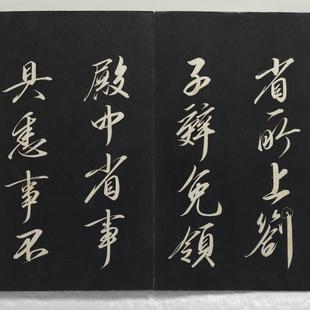 省所上劄
子辭免領
殿中省事
具悉事不